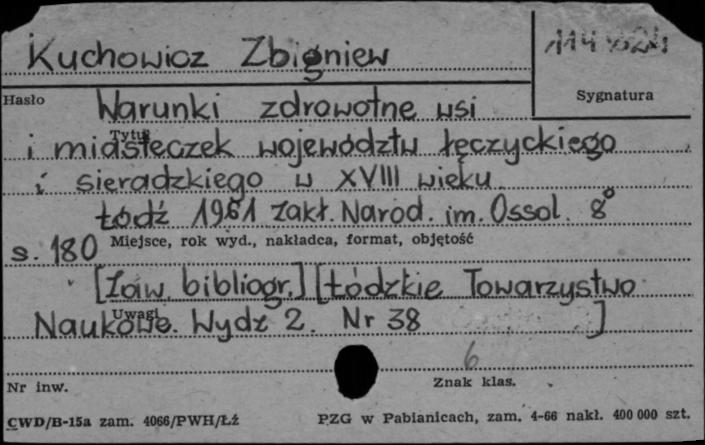 Kuchowicz Zbigniew
Hasło
Sygnatura
Warunki zdrowotne wsi
Tytuł
i miasteczek województw łęczyckiego
i sieradzkiego w XVIII wieku
Łódź 1961 Zakł. Narod. im. Ossol. 8°
s. 180 Miejsce, rok wyd., nakładca, format, objętość
[Zaw. bibliogr.] [Łódzkie Towarzystwo
Uwagi
Naukowe. Wydz 2. Nr 38 ]
6
Nr inw.
Znak klas.
CWD/B-15a zam. 4066/PWH/Łź
PZG w Pabianicach, zam. 4-66 nakł. 400 000 szt.